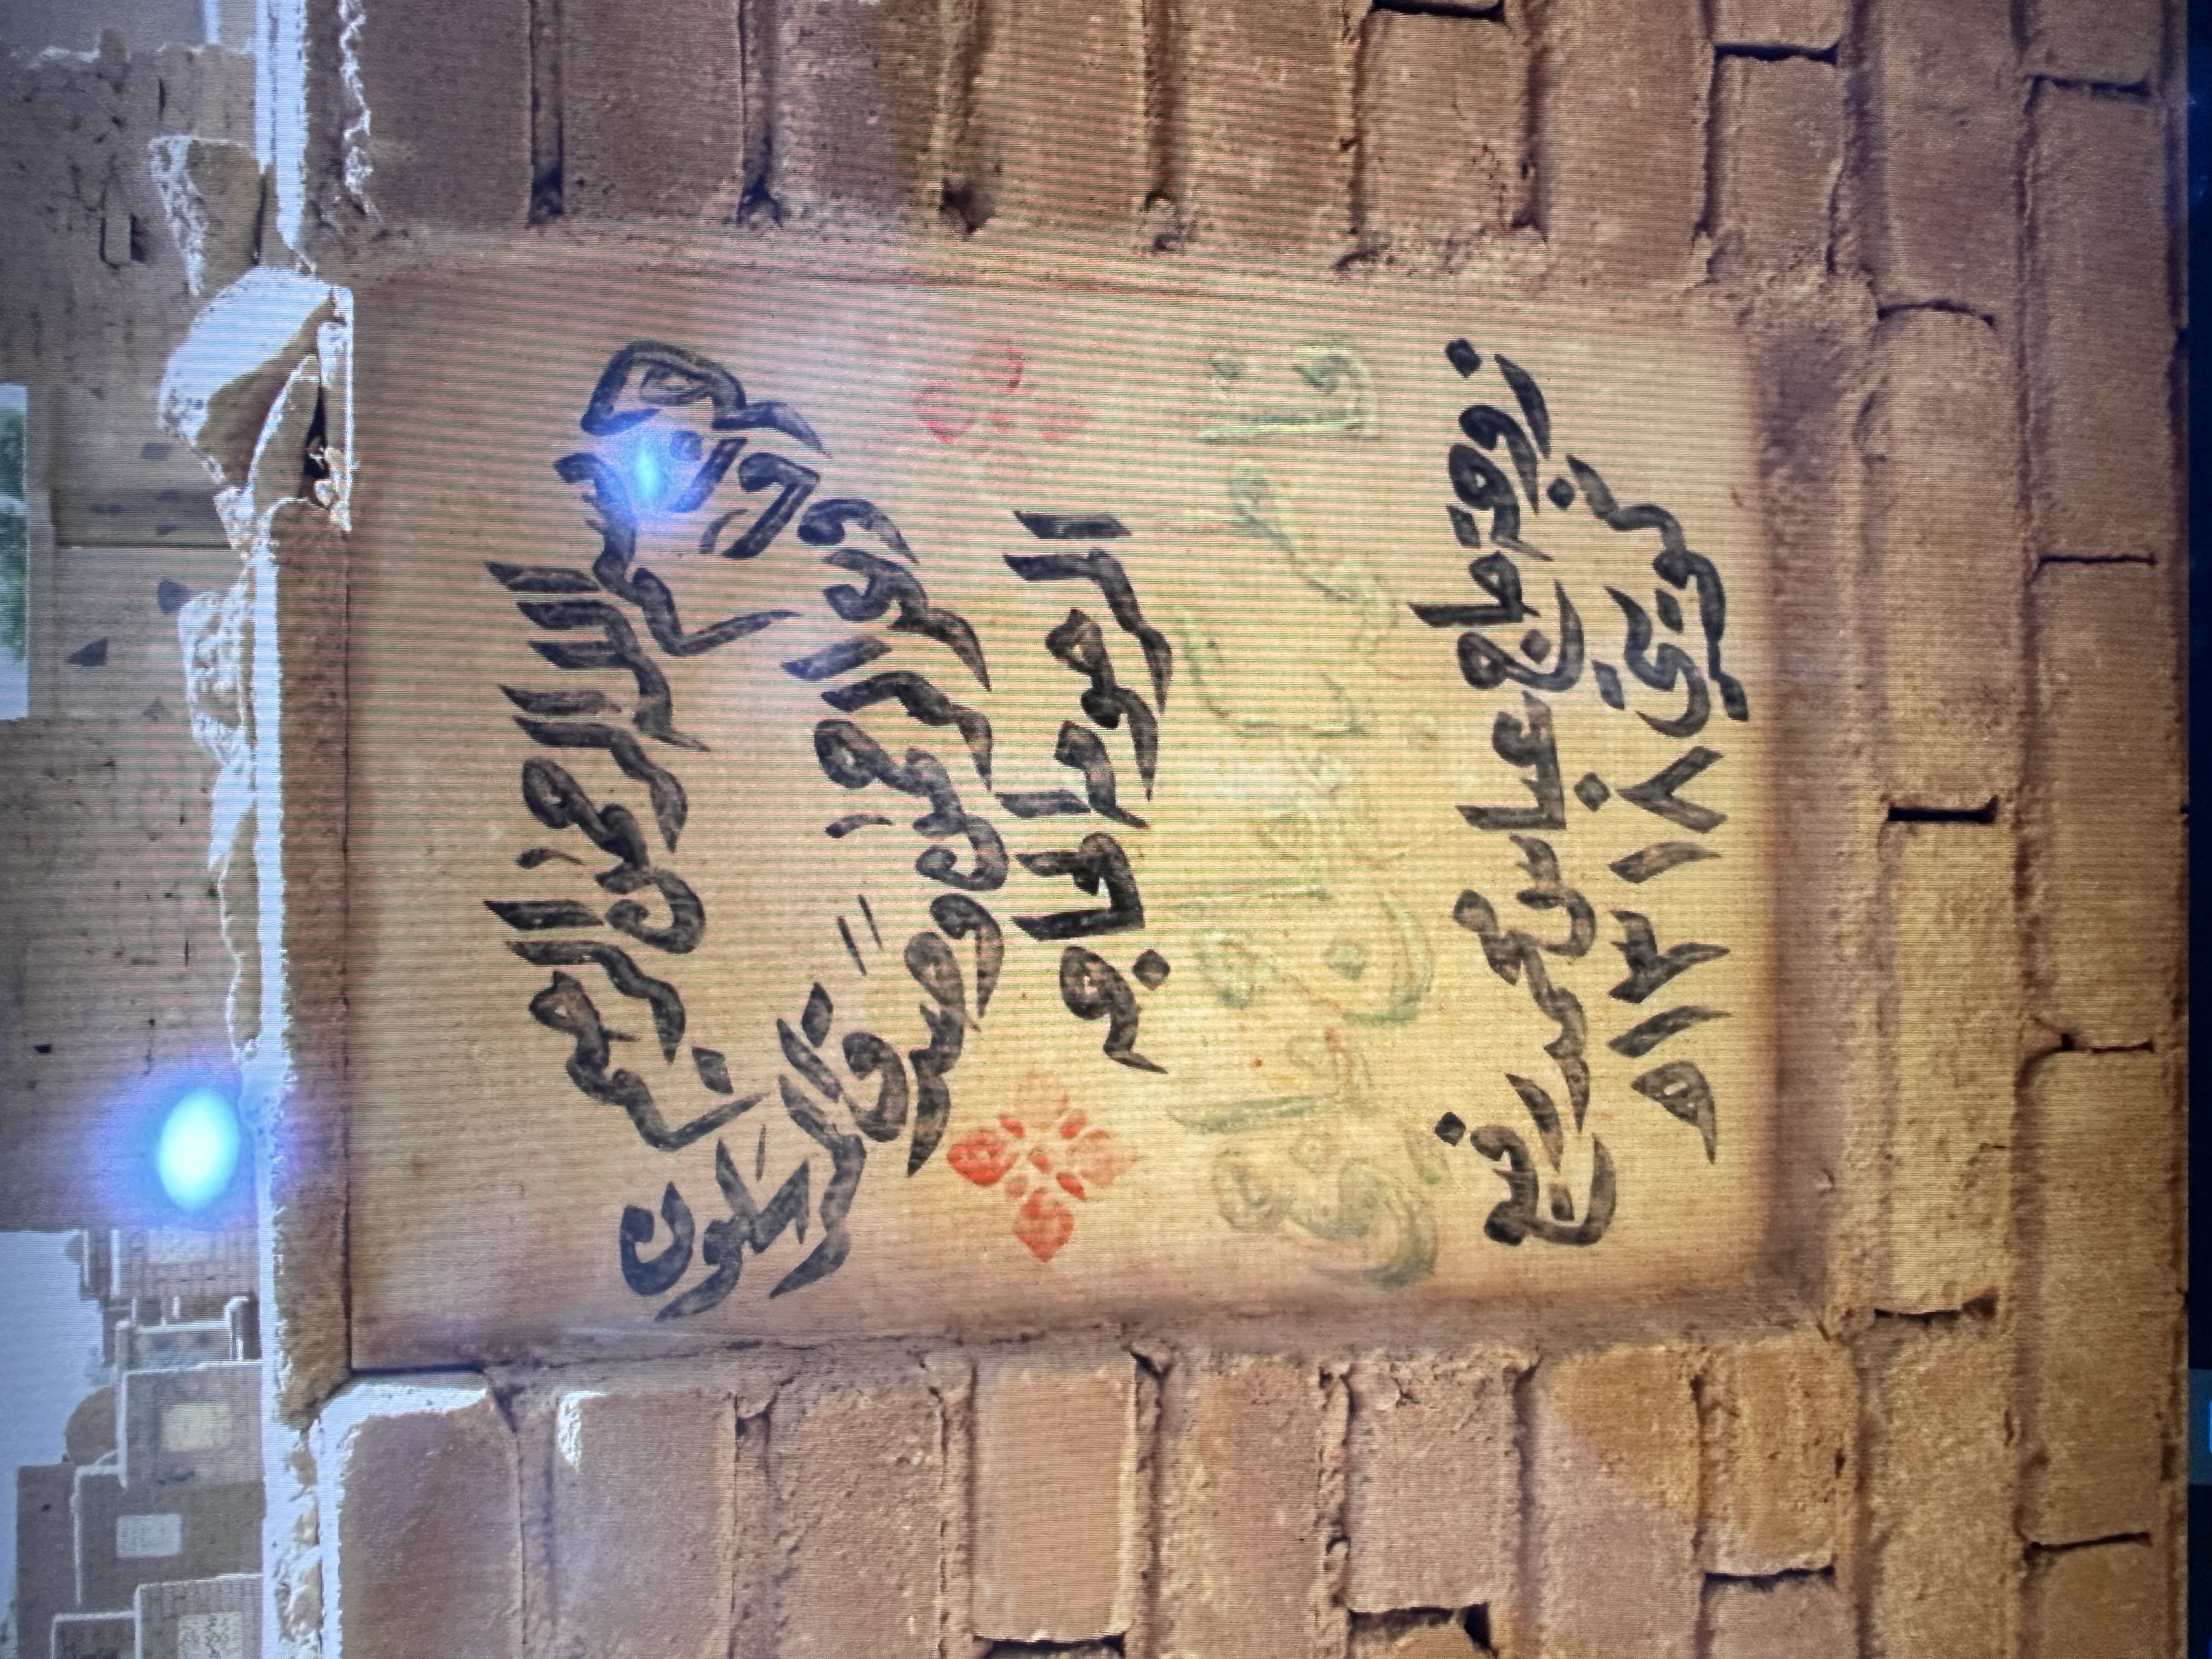 بسم الله الرحمن الرحيم
هذا ما وعد الرحمن وصدق المرسلون
المرحومه الحاجه
فاطمه
زوجة حاج عباس محمد رفيع
كويتي ١٣١٨ه